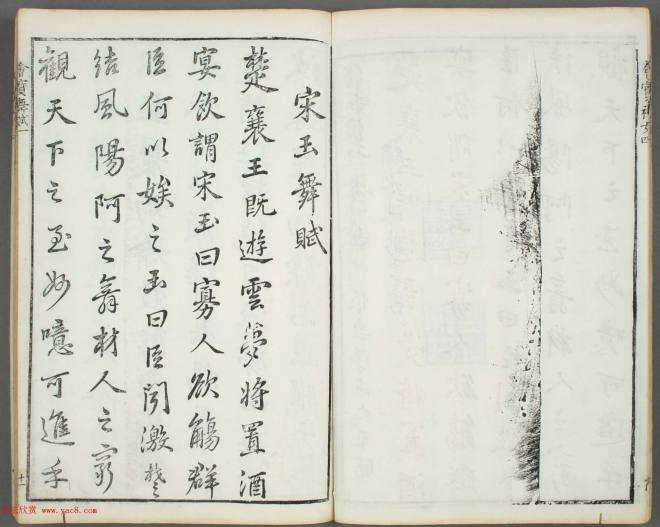 宋玉舞賦
楚襄王既遊雲夢將置酒
宴飲謂宋玉曰寡人欲觴群
臣何以娛之玉曰臣聞激楚
結風陽阿之舞材人之窮
觀天下之至妙噫可進乎
十一
欣赏 www.yac8.com